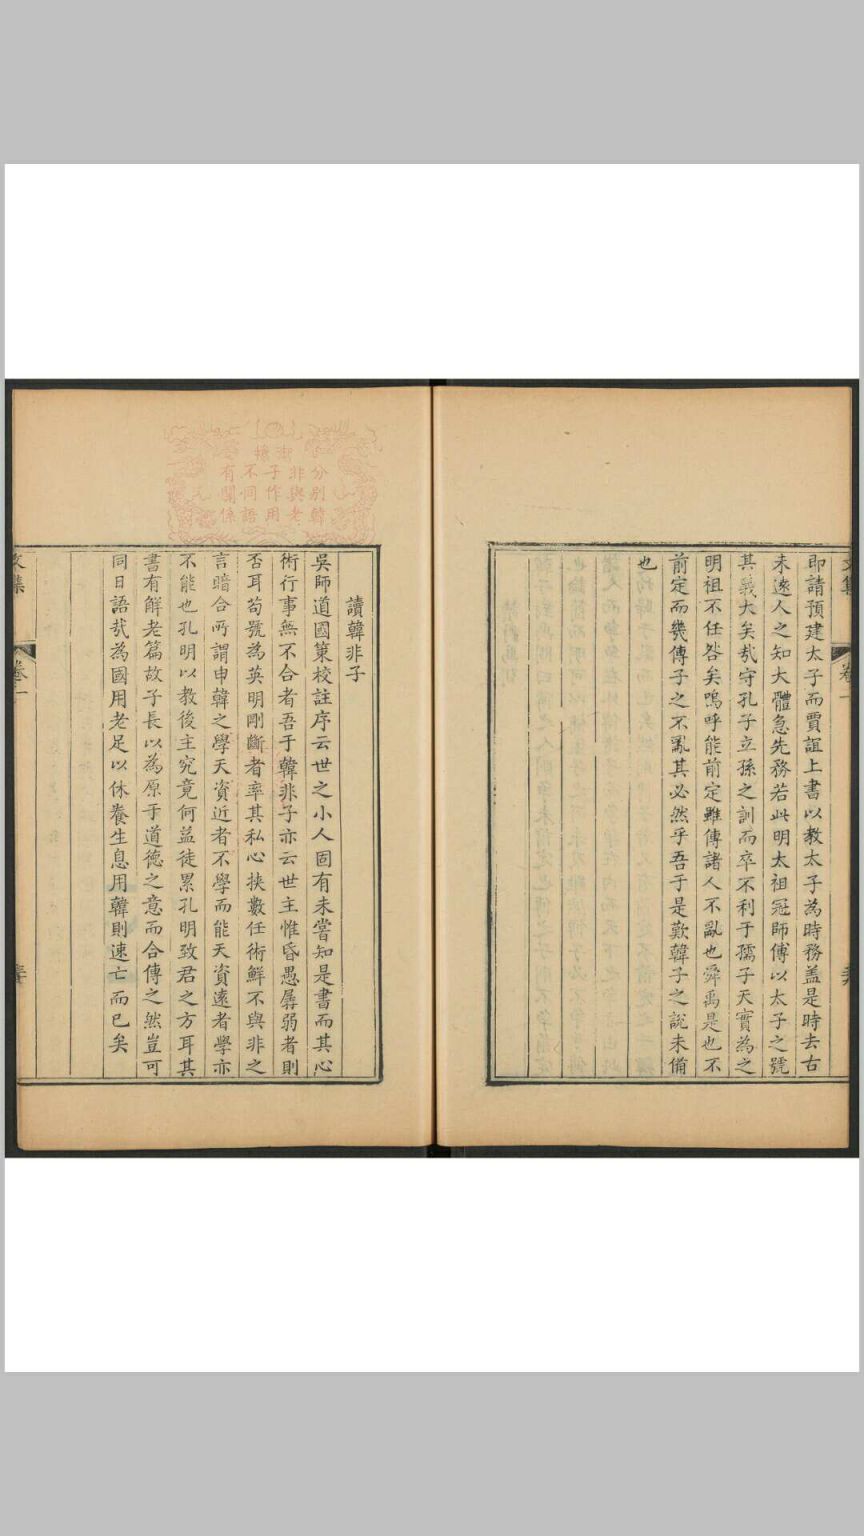 即請預建太子而賈誼上書以教太子為時務盖是時去古
未逺人之知大體急先務若此明太祖冠師傅以太子之號
其義大矣㢤守孔子立孫之訓而卒不利于孺子天實為之
明祖不任咎矣嗚呼能前定雖傳諸人不亂也舜禹是也不
前定而幾傳子之不亂其必然乎吾于是歎韓子之說未備
也
讀韓非子
吳師道國策校註序云世之小人固有未嘗知是書而其心
術行事無不合者吾于韓非子亦云世主惟昏愚孱弱者則
否耳苟號為英明剛斷者率其私心挾數任術鮮不與非之
言暗合所謂申韓之學天資近者不學而能天資逺者學亦
不能也孔明以教後主究竟何益徒累孔明致君之方耳其
書有解老篇故子長以為原于道德之意而合傳之然豈可
同日語㢤為國用老足以休養生息用韓則速亡而已矣
御擥
分別韓
非與老
子作用
不同語
有關係
文集
卷一